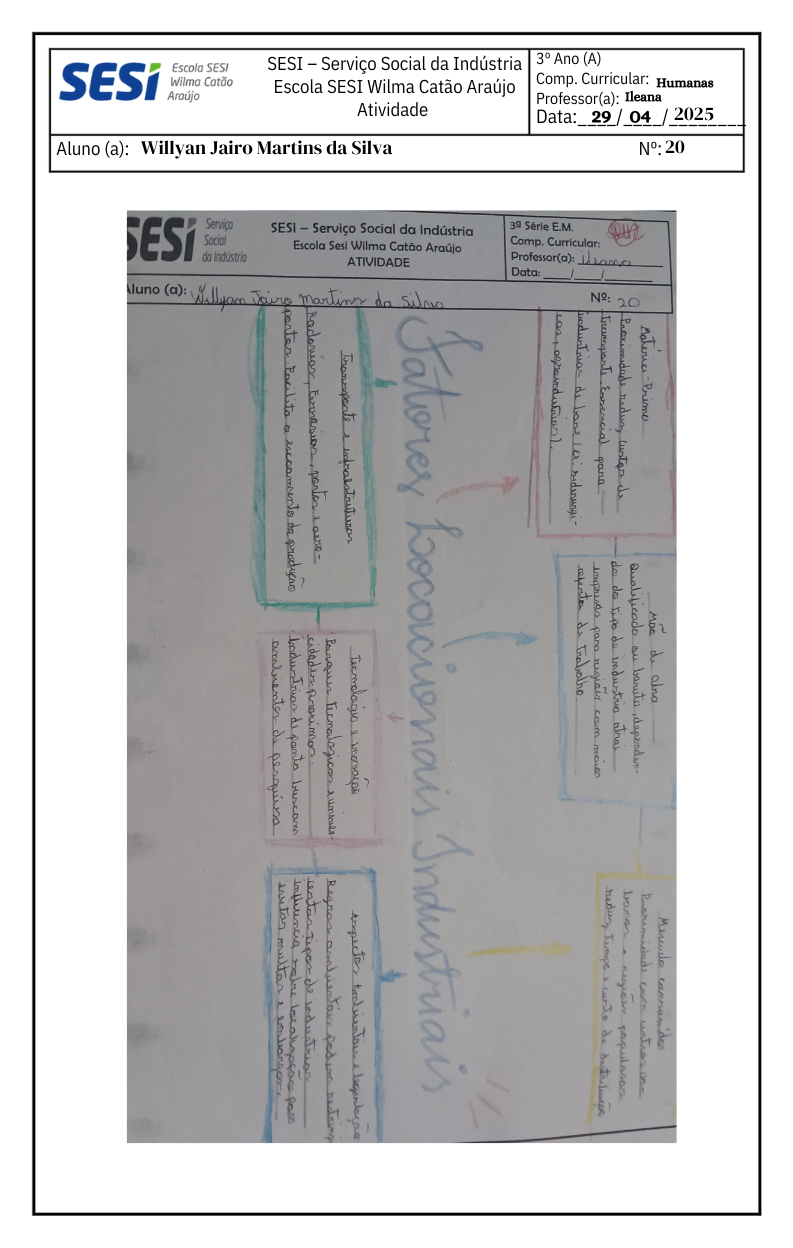 SESI
Escola SESI
Wilma Catão
Araújo
SESI – Serviço Social da Indústria
Escola SESI Wilma Catão Araújo
Atividade
3º Ano (A)
Comp. Curricular: Humanas
Professor(a): Ileana
Data: 29 / 04 / 2025
Aluno (a): Willyan Jairo Martins da Silva
Nº: 20
SESI
Serviço
Social
da Indústria
SESI – Serviço Social da Indústria
Escola Sesi Wilma Catão Araújo
ATIVIDADE
3ª Série E.M.
Comp. Curricular:
Professor(a): Ileana
Data: ____/____/________
Aluno (a): Willyam Jairo Martins da Silva
Nº: 20
Fatores Locacionais Industriais
Matéria-Prima
Proximidade reduz custos de
transporte. Essencial para
indústrias de base (ex: siderúrgi-
cas, agroindustrias).
Mão de obra
Qualificada ou barata, dependen-
do do tipo de indústria atrai
empresas para regiões com maior
oferta de trabalho
Mercado consumidor
Proximidade com centros ur-
banos e regiões populosas
reduz tempo e custo de distribuição
Transporte e infraestrutura
Rodovias, ferrovias, portos e aero-
portos. Facilita o escoamento da produção
Tecnologia e inovação
Parques tecnológicos e univer-
cidades próximas.
Indústrias de ponta buscam
ambientes de pesquisa
Aspectos Ambientais e legislação
Regras ambientais podem restringi
certos tipos de indústrias
influencia sobre localização para
evitar multas e embargos.